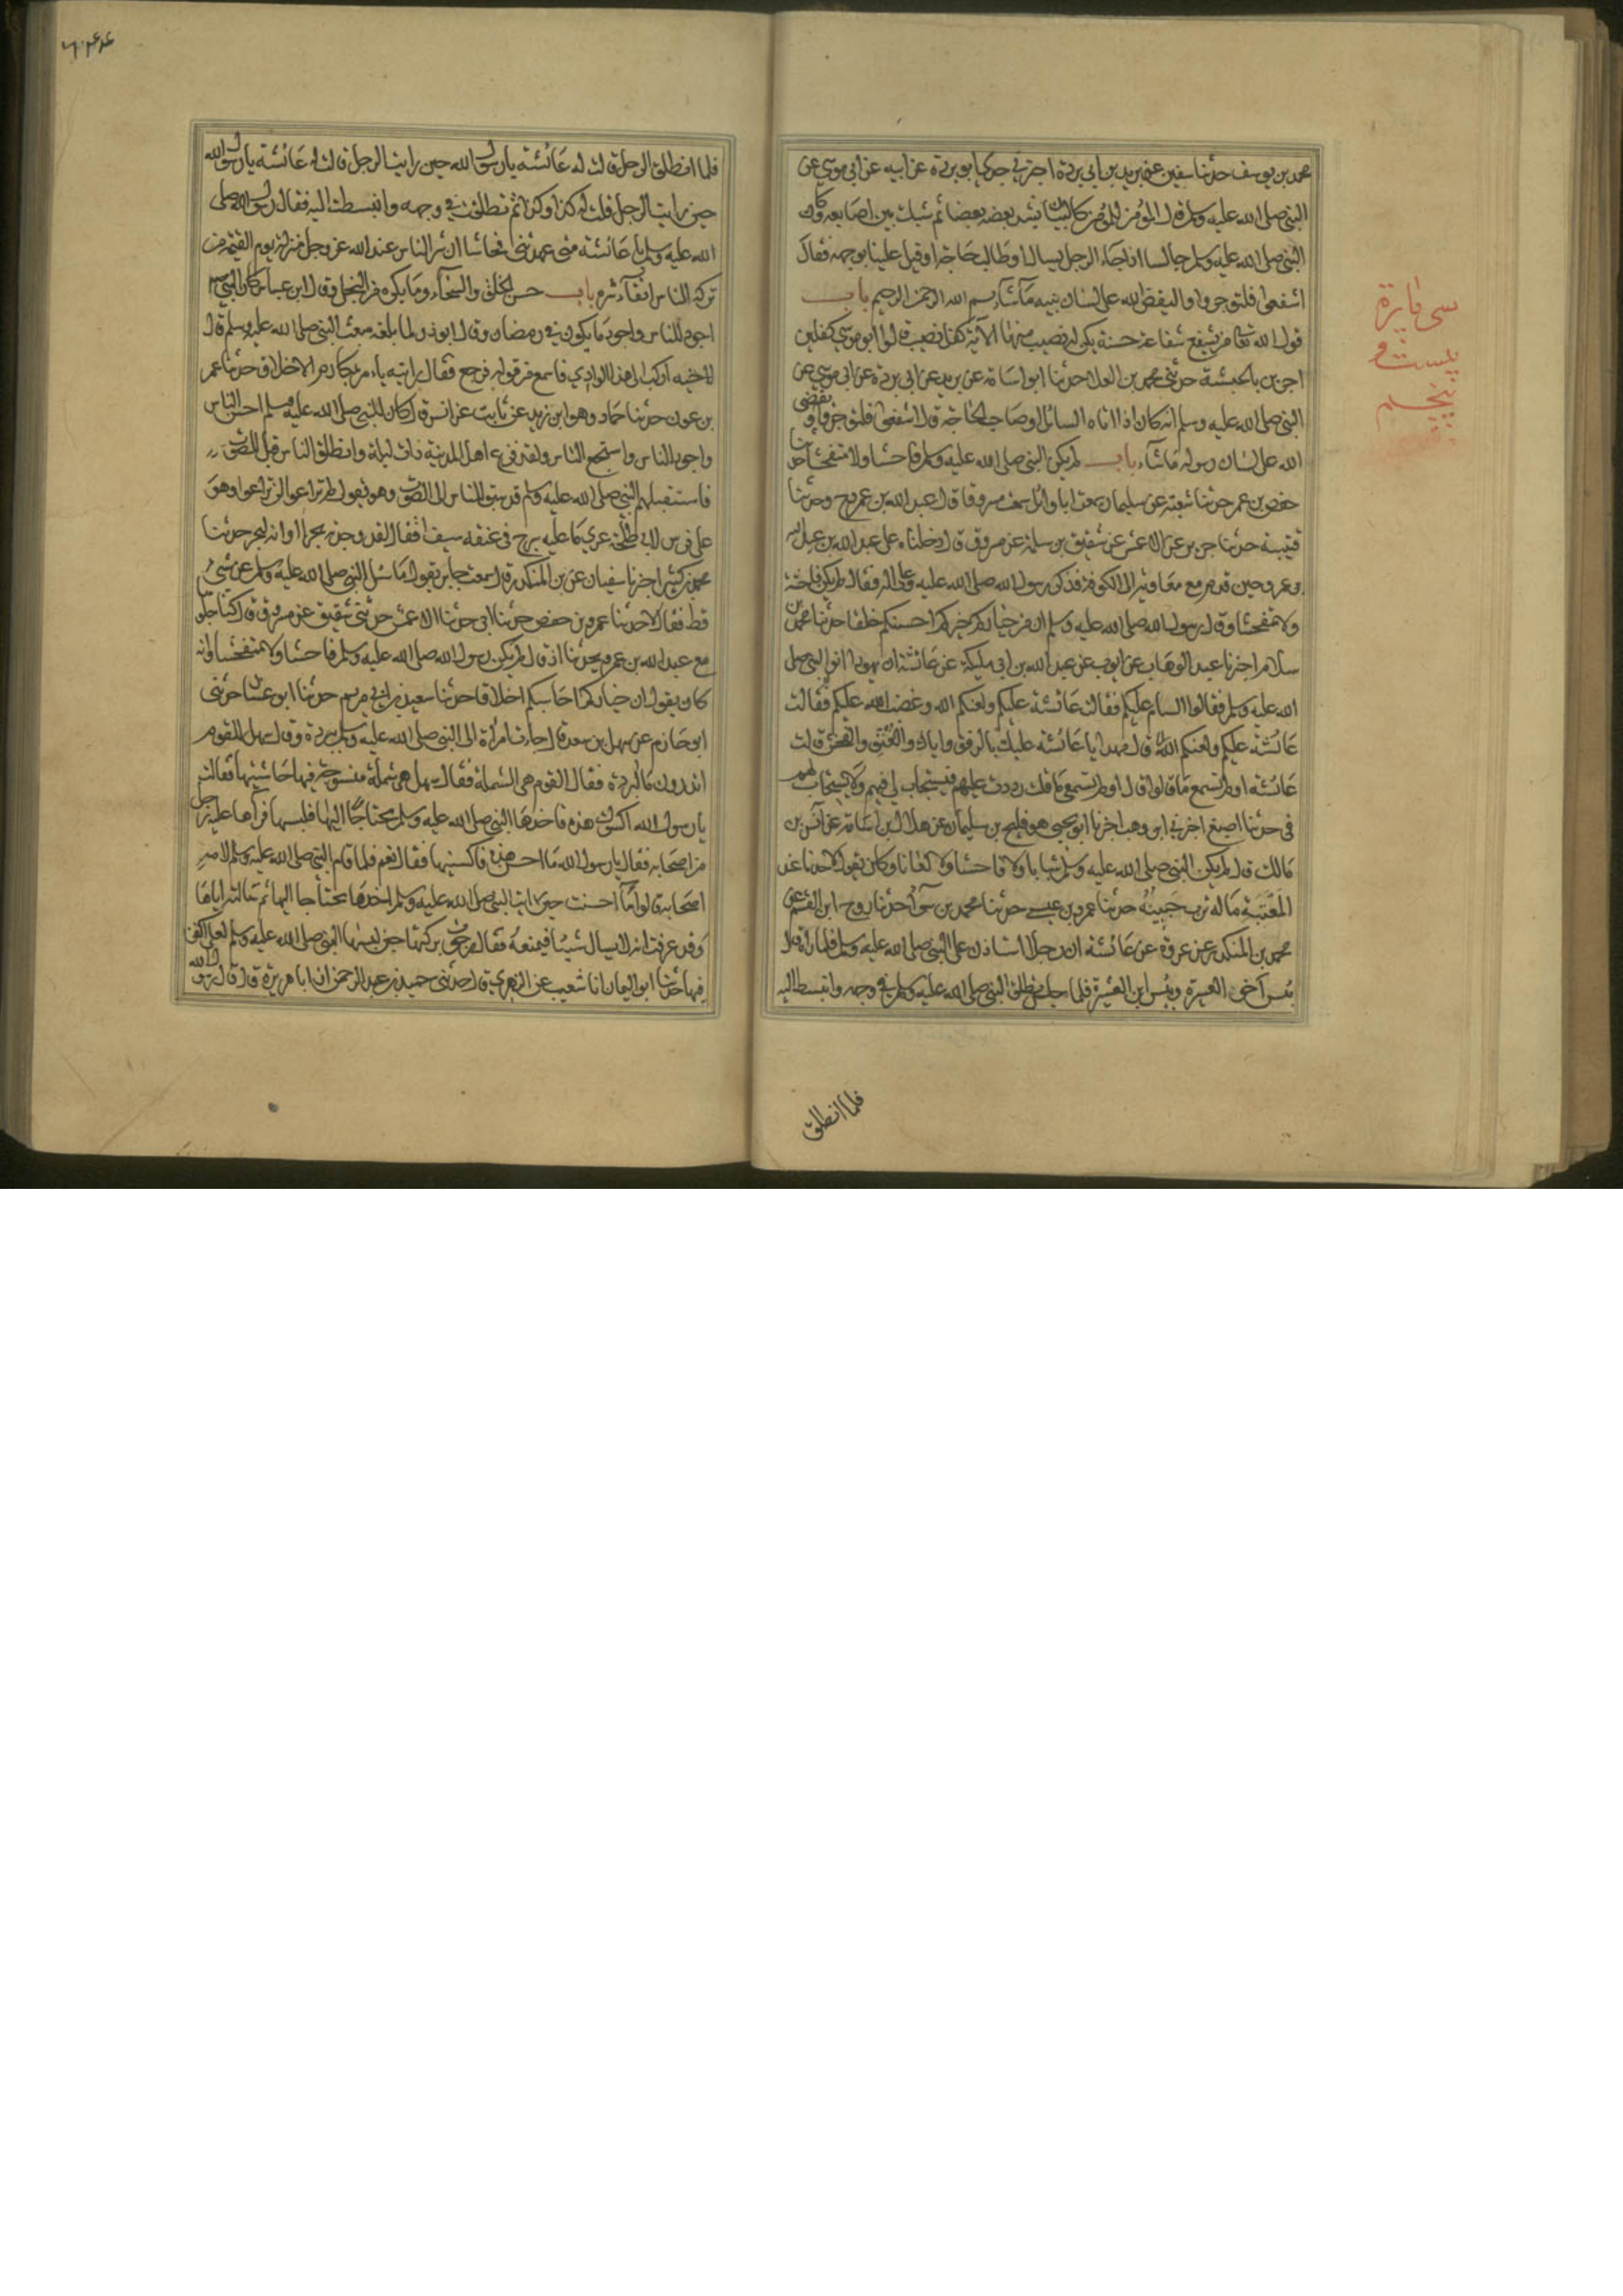 محمد بن يوسف حدثنا سفين عن بريد بن ابي بردة اخبرني جدي ابو بردة عن ابيه عن ابي موسي عن
النبي صلي الله عليه وسلم قال المؤمن للمؤمن كالبنيان يشد بعضه بعضا ثم شبك بين اصابعه وكان
النبي صلي الله عليه وسلم جالسا اذا جاء الرجل يسال او طالب حاجة اقبل علينا بوجهه فقال
اشفعوا فلتوجروا وليقض الله علي لسان نبيه ما شاء بسم الله الرحمن الرحيم باب
قول الله تعا من يشفع شفاعة حسنة يكن له نصيب منها الآية كفل نصيب قال ابو موسي كفلين
اجرين بالحبشة حدثني محمد بن العلا حدثنا ابو اسامة عن بريد عن ابي بردة عن ابي موسي عن
النبي صلي الله عليه وسلم انه كان اذا اتاه السائل او صاحب الحاجة قال اشفعوا فلتوجروا ويقضي
الله علي لسان رسوله ما شاء باب لم يكن النبي صلي الله عليه وسلم فاحشا ولا متفحشا حدثنا
حفص بن عمر حدثنا شعبة عن سليمان سمعت ابا وائل سمعت مسروقا قال عبد الله بن عمرو ح وحدثنا
قتيبة حدثنا جرير عن الاعمش عن شقيق بن سلمة عن مسروق قال دخلنا علي عبد الله بن
عمرو حين قدم مع معاوية الي الكوفة فذكر رسول الله صلي الله عليه وعلي اله فقال لم يكن فاحشا
ولا متفحشا وقال رسول الله صلي الله عليه وسلم ان من خياركم احسنكم خلقا حدثنا محمد بن
سلام اخبرنا عبد الوهاب عن ايوب عن عبد الله بن ابي مليكة عن عائشة ان يهودا اتوا النبي صلي
الله عليه وسلم فقالوا السام عليكم فقالت عائشة عليكم ولعنكم الله وغضب الله عليكم فقالت
عائشة عليكم ولعنكم الله قال مهلا يا عائشة عليك بالرفق واياك والعنف والفحش قالت
عائشة اولم تسمع ما قالوا قال اولم تسمعي ما قلت رددت عليهم فيستجاب لي فيهم ولا يستجاب لهم
في حدثنا اصبغ اخبرني ابن وهب اخبرنا ابو يحيي هو فليح بن سليمان عن هلال بن اسامة عن انس بن
مالك قال لم يكن النبي صلي الله عليه وسلم سبابا ولا فاحشا ولا لعانا وكان يقول لاحدنا عند
المعتبة ما له ترب جبينه حدثنا عمرو بن عيسي حدثنا محمد بن سواء حدثنا روح ابن القسم عن
محمد بن المنكدر عن عروة عن عائشة ان رجلا استاذن علي النبي صلي الله عليه وسلم فلما راه قال
بئس اخو العشيرة وبئس ابن العشيرة فلما جلس تطلق النبي صلي الله عليه وسلم في وجهه وانبسط اليه
فلما انطلق
سي پارة
بيست و
پنجم
فلما انطلق الرجل قالت له عائشة يا رسول الله حين رايت الرجل قالت له عائشة يا رسول الله
حين رايت الرجل قلت له كذا وكذا ثم تطلقت في وجهه وانبسطت اليه فقال رسول الله صلي
الله عليه وسلم يا عائشة متي عهدتني فحاشا ان شر الناس عند الله عز وجل منزلة يوم القيمة من
تركه الناس اتقاء شره باب حسن الخلق والسخاء وما يكره من البخل وقال ابن عباس كان النبي
اجود الناس واجود ما يكون في رمضان وقال ابو ذر لما بلغه مبعث النبي صلي الله عليه وسلم قال
لاخيه اركب الي هذا الوادي فاسمع من قوله فرجع فقال رايته يامر بمكارم الاخلاق حدثنا عمر
بن عون حدثنا حماد وهو ابن زيد عن ثابت عن انس قال كان النبي صلي الله عليه وسلم احسن الناس
واجود الناس واشجع الناس ولقد فزع اهل المدينة ذات ليلة وانطلق الناس قبل الصوت
فاستقبلهم النبي صلي الله عليه وسلم قد سبق الناس الي الصوت وهو يقول لم تراعوا لن تراعوا وهو
علي فرس لابي طلحة عري ما عليه سرج في عنقه سيف فقال لقد وجدته بحرا او انه لبحر حدثنا
محمد بن كثير اخبرنا سفيان عن بن المنكدر قال سمعت جابر يقول ما سئل النبي صلي الله عليه وسلم عن شي
قط فقال لا حدثنا عمرو بن حفص حدثنا ابي حدثنا الاعمش حدثني شقيق عن مسروق قال كنا جلوسا
مع عبد الله بن عمرو يحدثنا اذ قال لم يكن رسول الله صلي الله عليه وسلم فاحشا ولا متفحشا وانه
كان يقول ان خياركم احاسنكم اخلاقا حدثنا سعيد بن ابي مريم حدثنا ابو غسان حدثني
ابو حازم عن سهل بن سعد قال جاءت امراة الي النبي صلي الله عليه وسلم ببردة وقال سهل للقوم
اتدرون ما البردة فقال القوم هي الشملة فقال سهل هي شملة منسوجة فيها حاشيتها فقالت
يا رسول الله اكسوك هذه فاخذها النبي صلي الله عليه وسلم محتاجا اليها فلبسها فراها عليه رجل
من اصحابه فقال يا رسول الله ما احسن هذه فاكسنيها فقال نعم فلما قام النبي صلي الله عليه وسلم لامه
اصحابه قالوا ما احسنت حين رايت النبي صلي الله عليه وسلم اخذها محتاجا اليها ثم سالته اياها
وقد عرفت انه لا يسال شيئا فيمنعه فقال رجوت بركتها حين لبسها النبي صلي الله عليه وسلم لعلي اكفن
فيها حدثنا ابو اليمان انا شعيب عن الزهري قال حدثني حميد بن عبد الرحمن ان ابا هريرة قال قال رسول الله